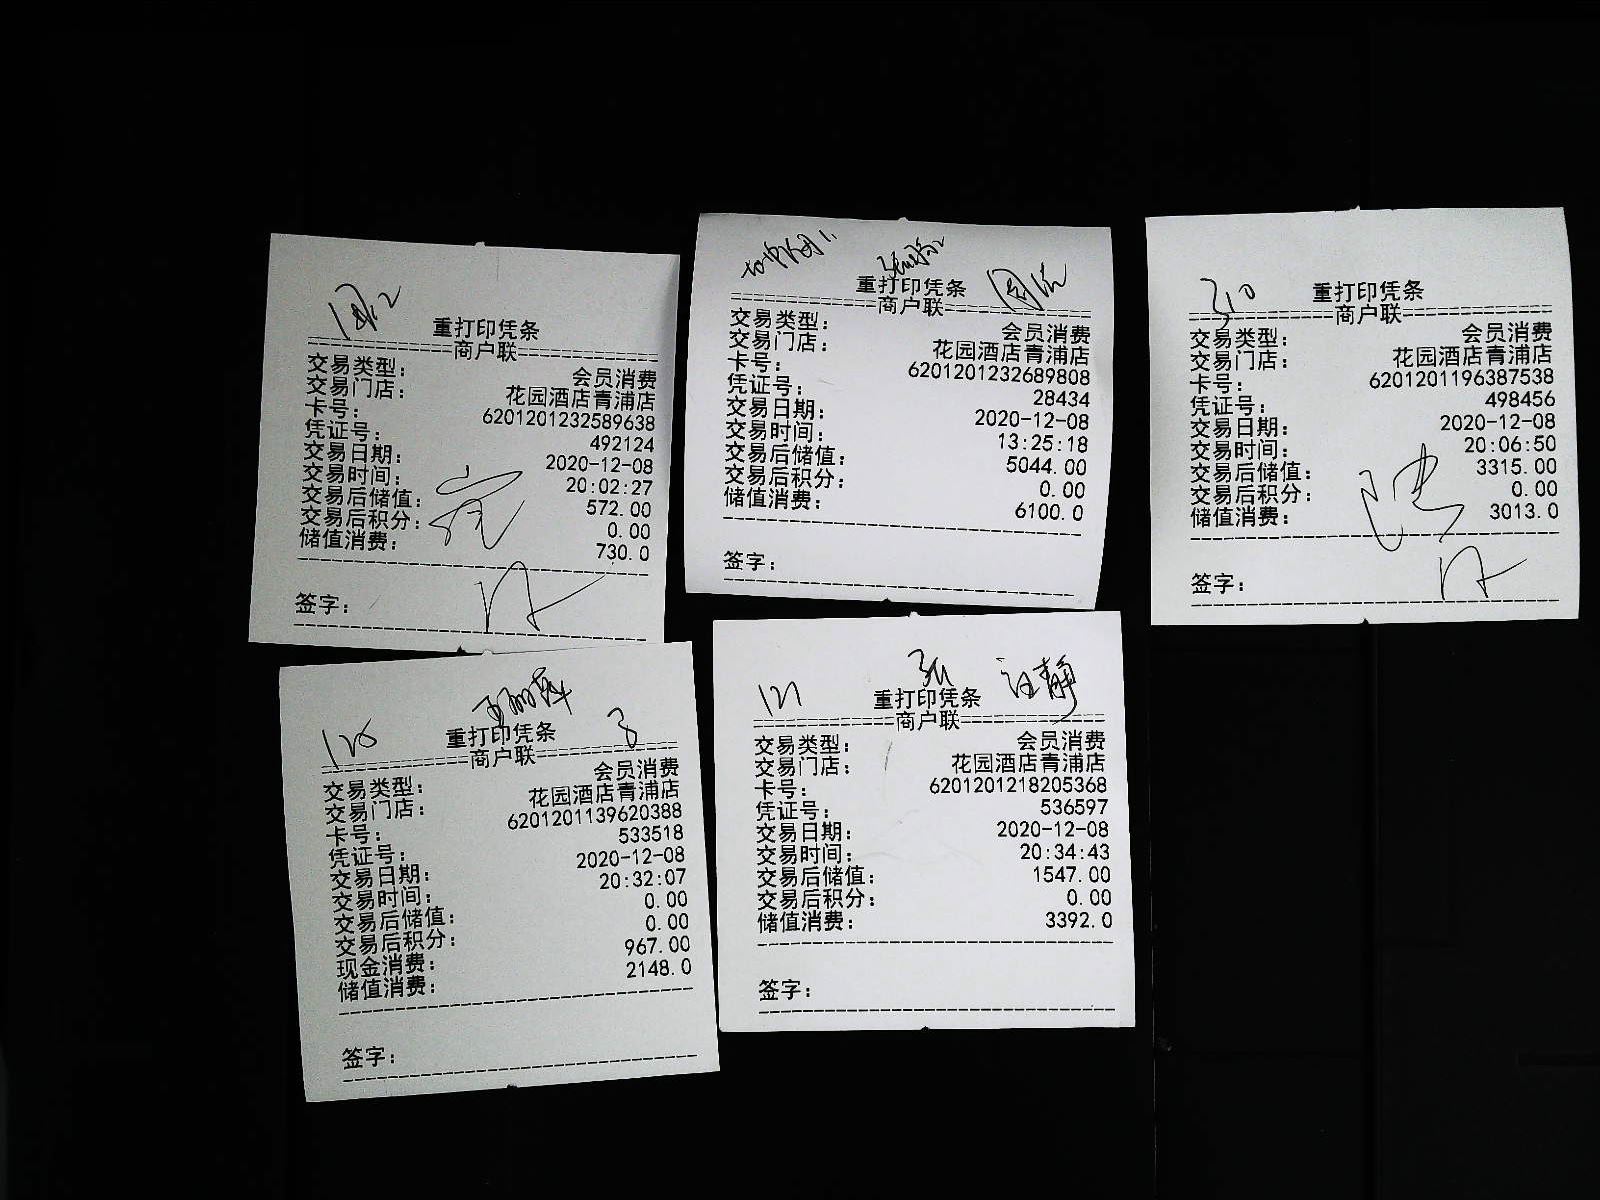 重打印凭条
================商户联================
交易类型： 会员消费
交易门店： 花园酒店青浦店
卡号： 6201201232589638
凭证号： 492124
交易日期： 2020-12-08
交易时间： 20:02:27
交易后储值： 572.00
交易后积分： 0.00
储值消费： 730.0
签字：
重打印凭条
================商户联================
交易类型： 会员消费
交易门店： 花园酒店青浦店
卡号： 6201201232689808
凭证号： 28434
交易日期： 2020-12-08
交易时间： 13:25:18
交易后储值： 5044.00
交易后积分： 0.00
储值消费： 6100.0
签字：
310
重打印凭条
================商户联================
交易类型： 会员消费
交易门店： 花园酒店青浦店
卡号： 6201201196387538
凭证号： 498456
交易日期： 2020-12-08
交易时间： 20:06:50
交易后储值： 3315.00
交易后积分： 0.00
储值消费： 3013.0
签字：
126
重打印凭条
================商户联================
交易类型： 会员消费
交易门店： 花园酒店青浦店
卡号： 6201201139620388
凭证号： 533518
交易日期： 2020-12-08
交易时间： 20:32:07
交易后储值： 0.00
交易后积分： 0.00
现金消费： 967.00
储值消费： 2148.0
签字：
121 汪静
重打印凭条
================商户联================
交易类型： 会员消费
交易门店： 花园酒店青浦店
卡号： 6201201218205368
凭证号： 536597
交易日期： 2020-12-08
交易时间： 20:34:43
交易后储值： 1547.00
交易后积分： 0.00
储值消费： 3392.0
签字：